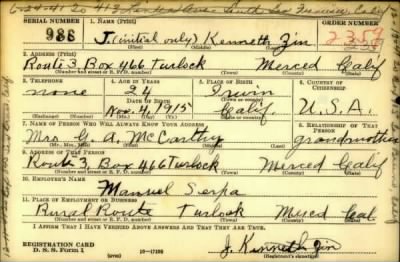 6-24-41 to 413 Ave. South San Francisco, Calif
SERIAL NUMBER 1. NAME (Print) ORDER NUMBER
986 J. (initial only) Kenneth Zin 2359
(First) (Middle) (Last)
2. ADDRESS (Print)
Route 3 Box 466 Turlock Merced Calif
(Number and street or R. F. D. number) (Town) (County) (State)
3. TELEPHONE 4. AGE IN YEARS 5. PLACE OF BIRTH 6. COUNTRY OF CITIZENSHIP
none 24 Irwin
DATE OF BIRTH (Town or county)
Nov. 4, 1915 Calif. U.S.A.
(Mo.) (Day) (Yr.) (State or country)
7. NAME OF PERSON WHO WILL ALWAYS KNOW YOUR ADDRESS 8. RELATIONSHIP OF THAT PERSON
Mrs. G. A. McCarthy grandmother
(Mr., Mrs., Miss) (First) (Middle) (Last)
9. ADDRESS OF THAT PERSON
Route 3, Box 466 Turlock Merced Calif
(Number and street or R. F. D. number) (Town) (County) (State)
10. EMPLOYER'S NAME
Manuel Serpa
11. PLACE OF EMPLOYMENT OR BUSINESS
Rural Route Turlock Merced Cal.
(Number and street or R. F. D. number) (Town) (County) (State)
I AFFIRM THAT I HAVE VERIFIED ABOVE ANSWERS AND THAT THEY ARE TRUE.
REGISTRATION CARD
D. S. S. Form 1 16-17105 J. Kenneth Zin
(Registrant's signature)